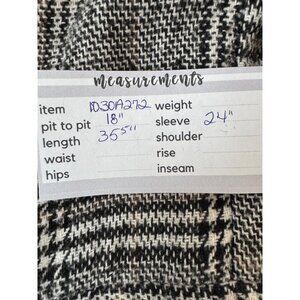 measurements
item 1030A272 weight
pit to pit 18" sleeve 24"
length 35.5" shoulder
waist rise
hips inseam